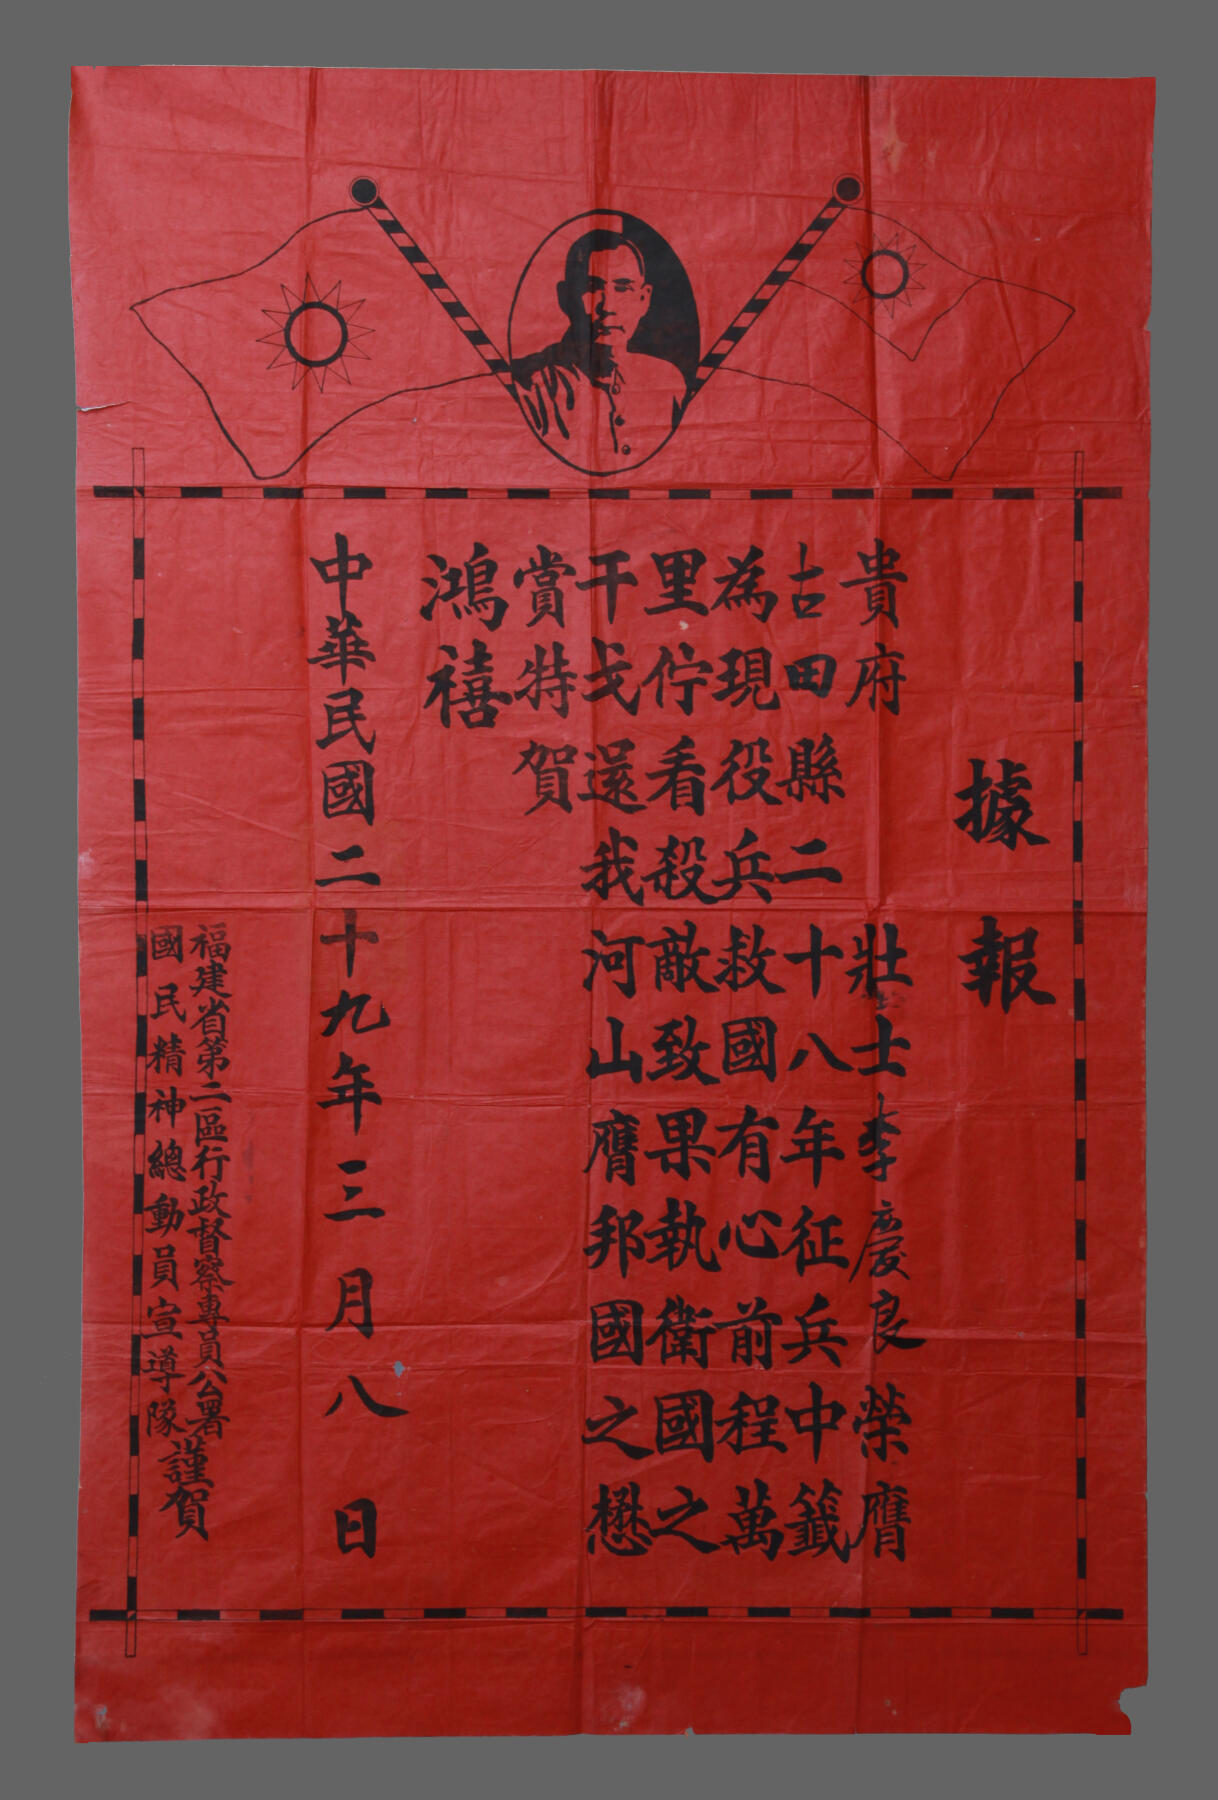 據報
貴府壯士李慶良榮膺
古田縣二十八年征兵中籤
為現役兵救國有心前程萬
里佇看殺敵致果執衛國之
干戈還我河山膺邦國之懋
賞特賀
鴻禧
中華民國二十九年三月八日
福建省第二區行政督察專員公署
國民精神總動員宣導隊
謹賀